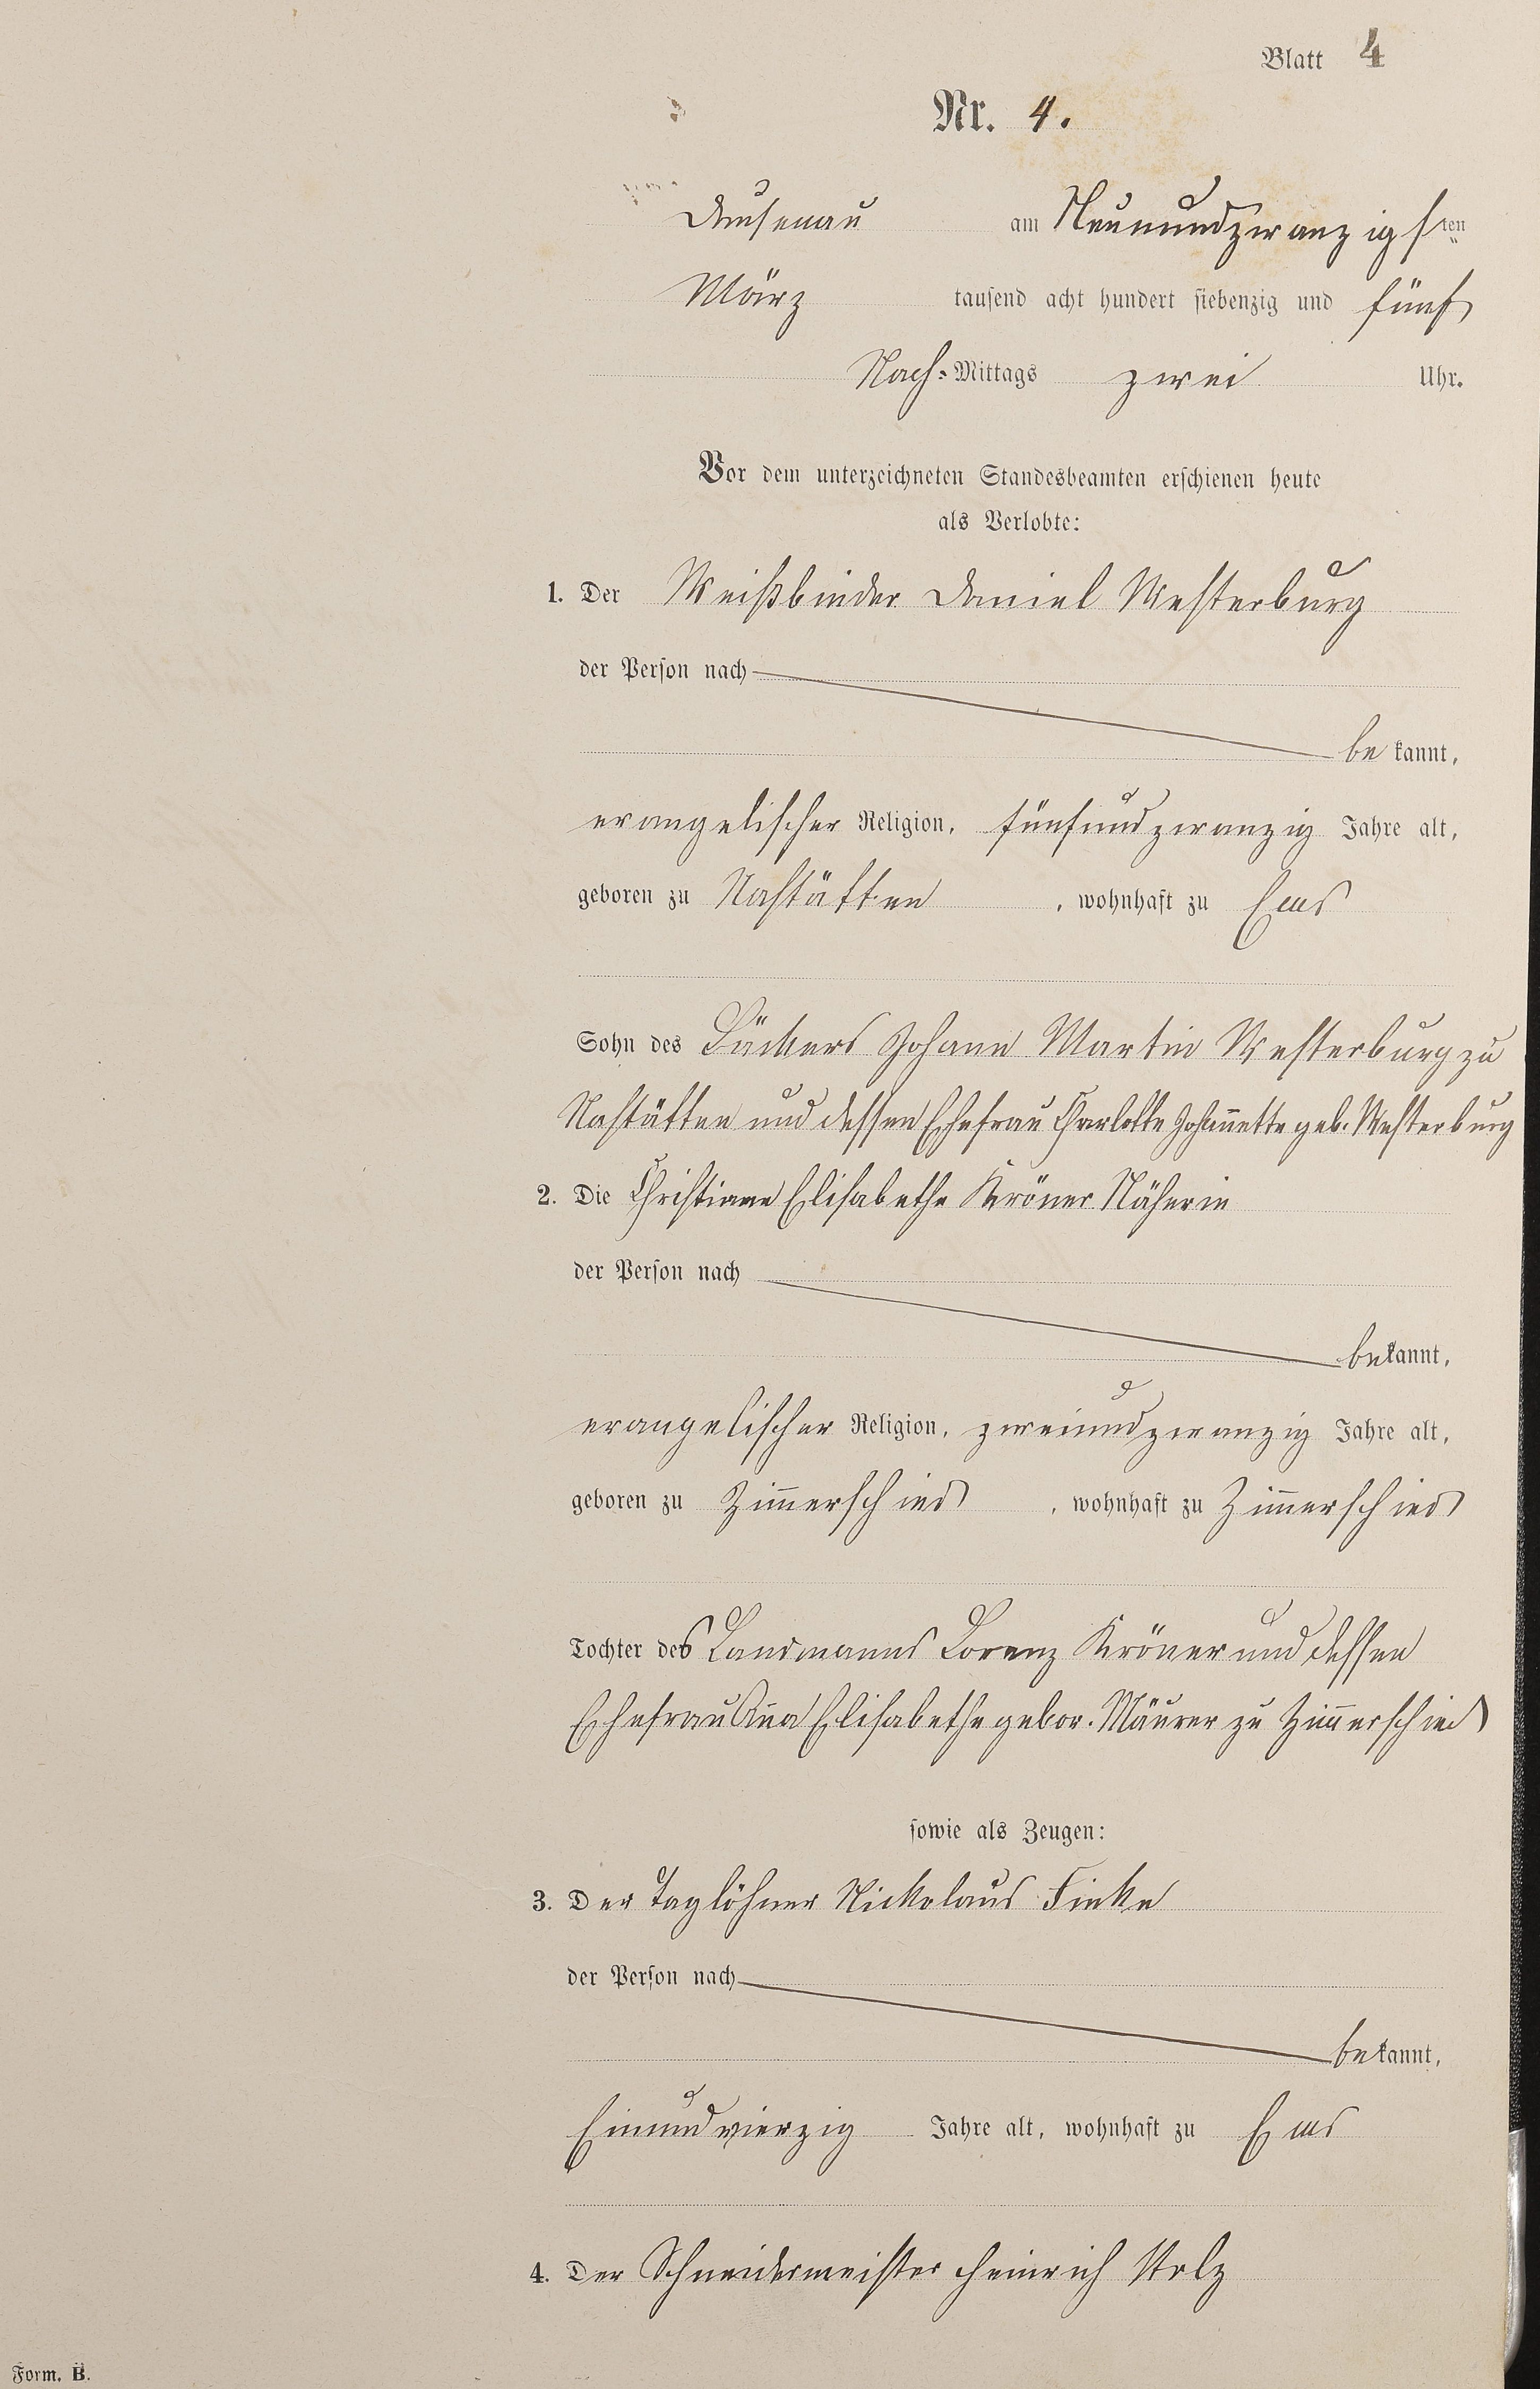 Blatt 4
Nr. 4.
Dausenau am Neunundzwanzigsten
März tausend acht hundert siebenzig und fünf
Nach-Mittags zwei Uhr.
Vor dem unterzeichneten Standesbeamten erschienen heute
als Verlobte:
1. Der Weißbinder Daniel Westerburg
der Person nach
bekannt,
evangelischer Religion, fünfundzwanzig Jahre alt,
geboren zu Nastätten, wohnhaft zu Ems
Sohn des Bäckers Johann Martin Westerburg zu
Nastätten und dessen Ehefrau Charlotte Johannette geb. Westerburg
2. Die Christiane Elisabethe Kröner Näherin
der Person nach
bekannt,
evangelischer Religion, zweiundzwanzig Jahre alt,
geboren zu Zimmerschied, wohnhaft zu Zimmerschied
Tochter des Landmanns Lorenz Kröner und dessen
Ehefrau Anna Elisabethe gebor. Mäurer zu Zimmerschied
sowie als Zeugen:
3. Der Taglöhner Nickolaus Finke
der Person nach
bekannt,
Einundvierzig Jahre alt, wohnhaft zu Ems
4. Der Schneidermeister Heinrich Stolz
Form. B.